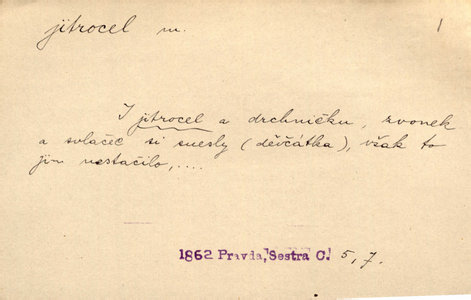 jitrocel m. 1
I jitrocel a drchničku, zvonek
a svlačec si snesly (děvčátka), však to
jim nestačilo,....
1862 Pravda, Sestra C. 5, 7.